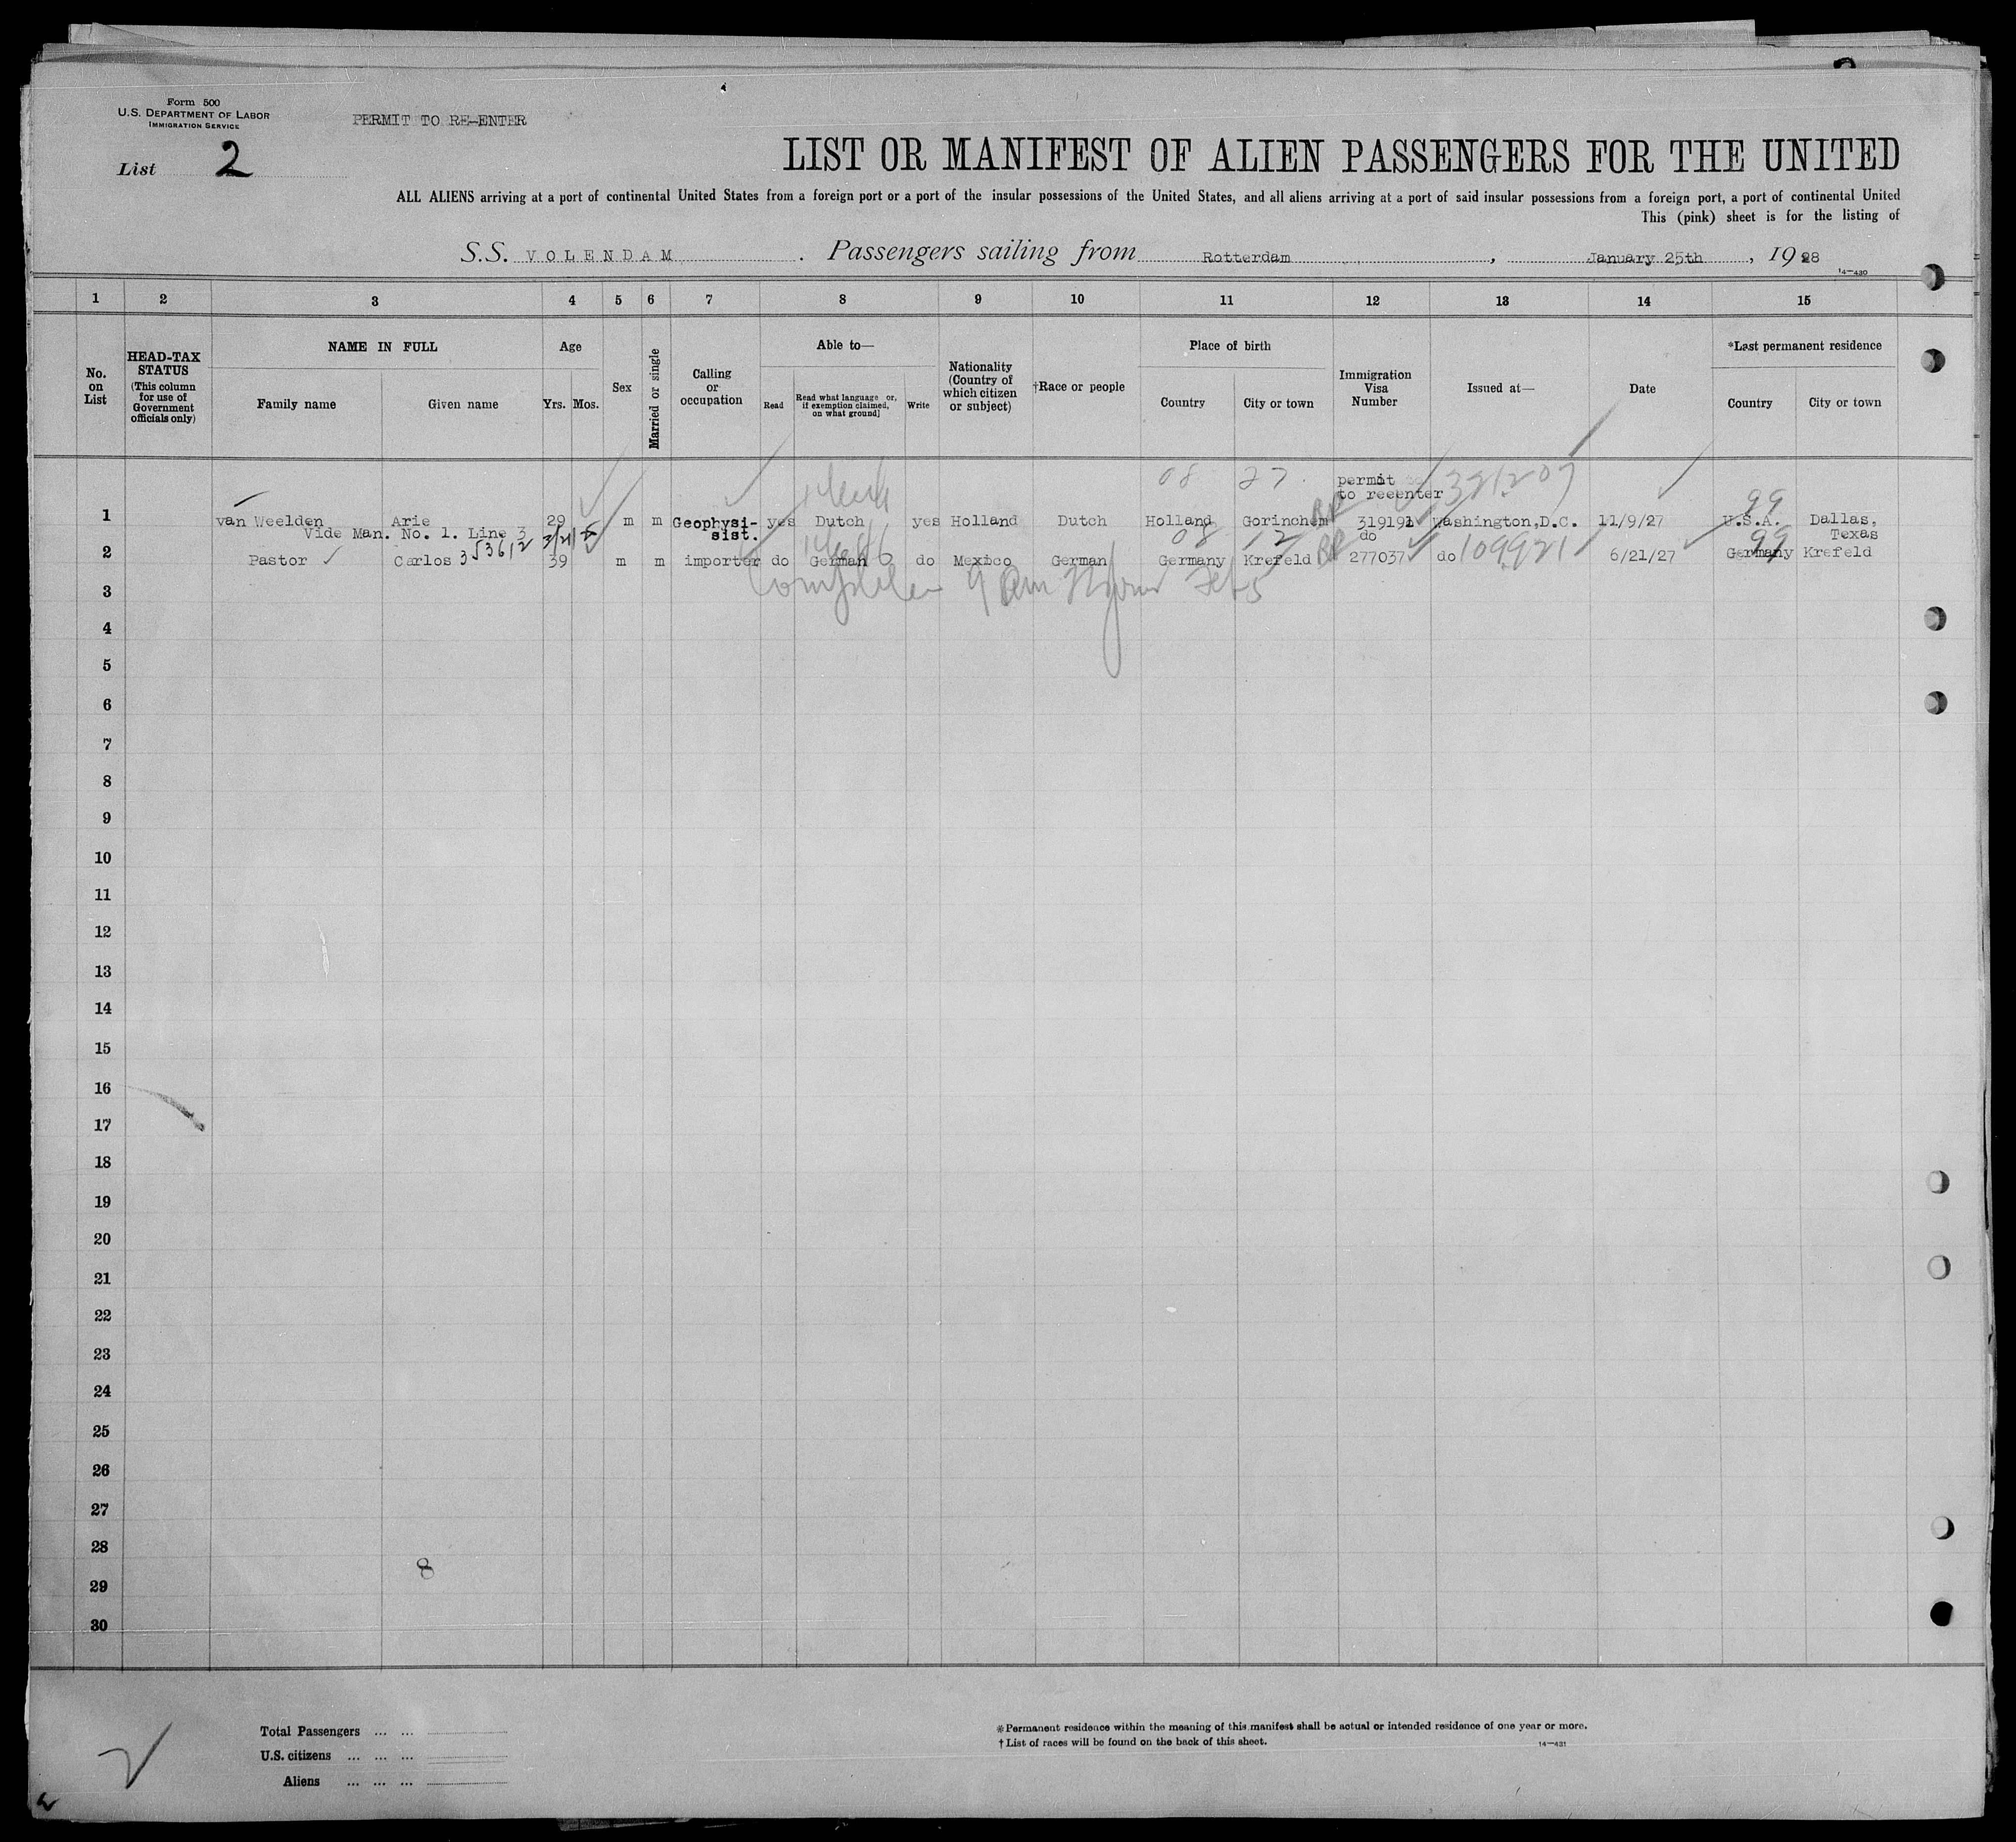 Form 500
U.S. DEPARTMENT OF LABOR
IMMIGRATION SERVICE
PERMIT TO RE-ENTER
List 2
LIST OR MANIFEST OF ALIEN PASSENGERS FOR THE UNITED
ALL ALIENS arriving at a port of continental United States from a foreign port or a port of the insular possessions of the United States, and all aliens arriving at a port of said insular possessions from a foreign port, a port of continental United
This (pink) sheet is for the listing of
S.S. VOLENDAM. Passengers sailing from Rotterdam, January 25th, 1928
14—430
1 2 3 4 5 6 7 8 9 10 11 12 13 14 15
No. on List
HEAD-TAX STATUS (This column for use of Government officials only)
NAME IN FULL
Family name Given name
Age
Yrs. Mos.
Sex
Married or single
Calling or occupation
Able to—
Read Read what language or, if exemption claimed, on what ground] Write
Nationality (Country of which citizen or subject)
†Race or people
Place of birth
Country City or town
Immigration Visa Number
Issued at—
Date
*Last permanent residence
Country City or town
08 27 permit 321207
to reeenter 99
1 van Weelden Arie 29 m m Geophysi- yes Dutch yes Holland Dutch Holland Gorinchem 319191 Washington,D.C. 11/9/27 U.S.A. Dallas,
Vide Man. No. 1. Line 3 sist. 08 12 do 99 Texas
2 Pastor Carlos 353612 39 m m importer do German do Mexico German Germany Krefeld 277037 do 109921 6/21/27 Germany Krefeld
9 Am Feb 5
3
4
5
6
7
8
9
10
11
12
13
14
15
16
17
18
19
20
21
22
23
24
25
26
27
28
8
29
30
Total Passengers ... ...
U.S. citizens ... ... ...
Aliens ... ... ...
*Permanent residence within the meaning of this manifest shall be actual or intended residence of one year or more.
†List of races will be found on the back of this sheet.
14—431